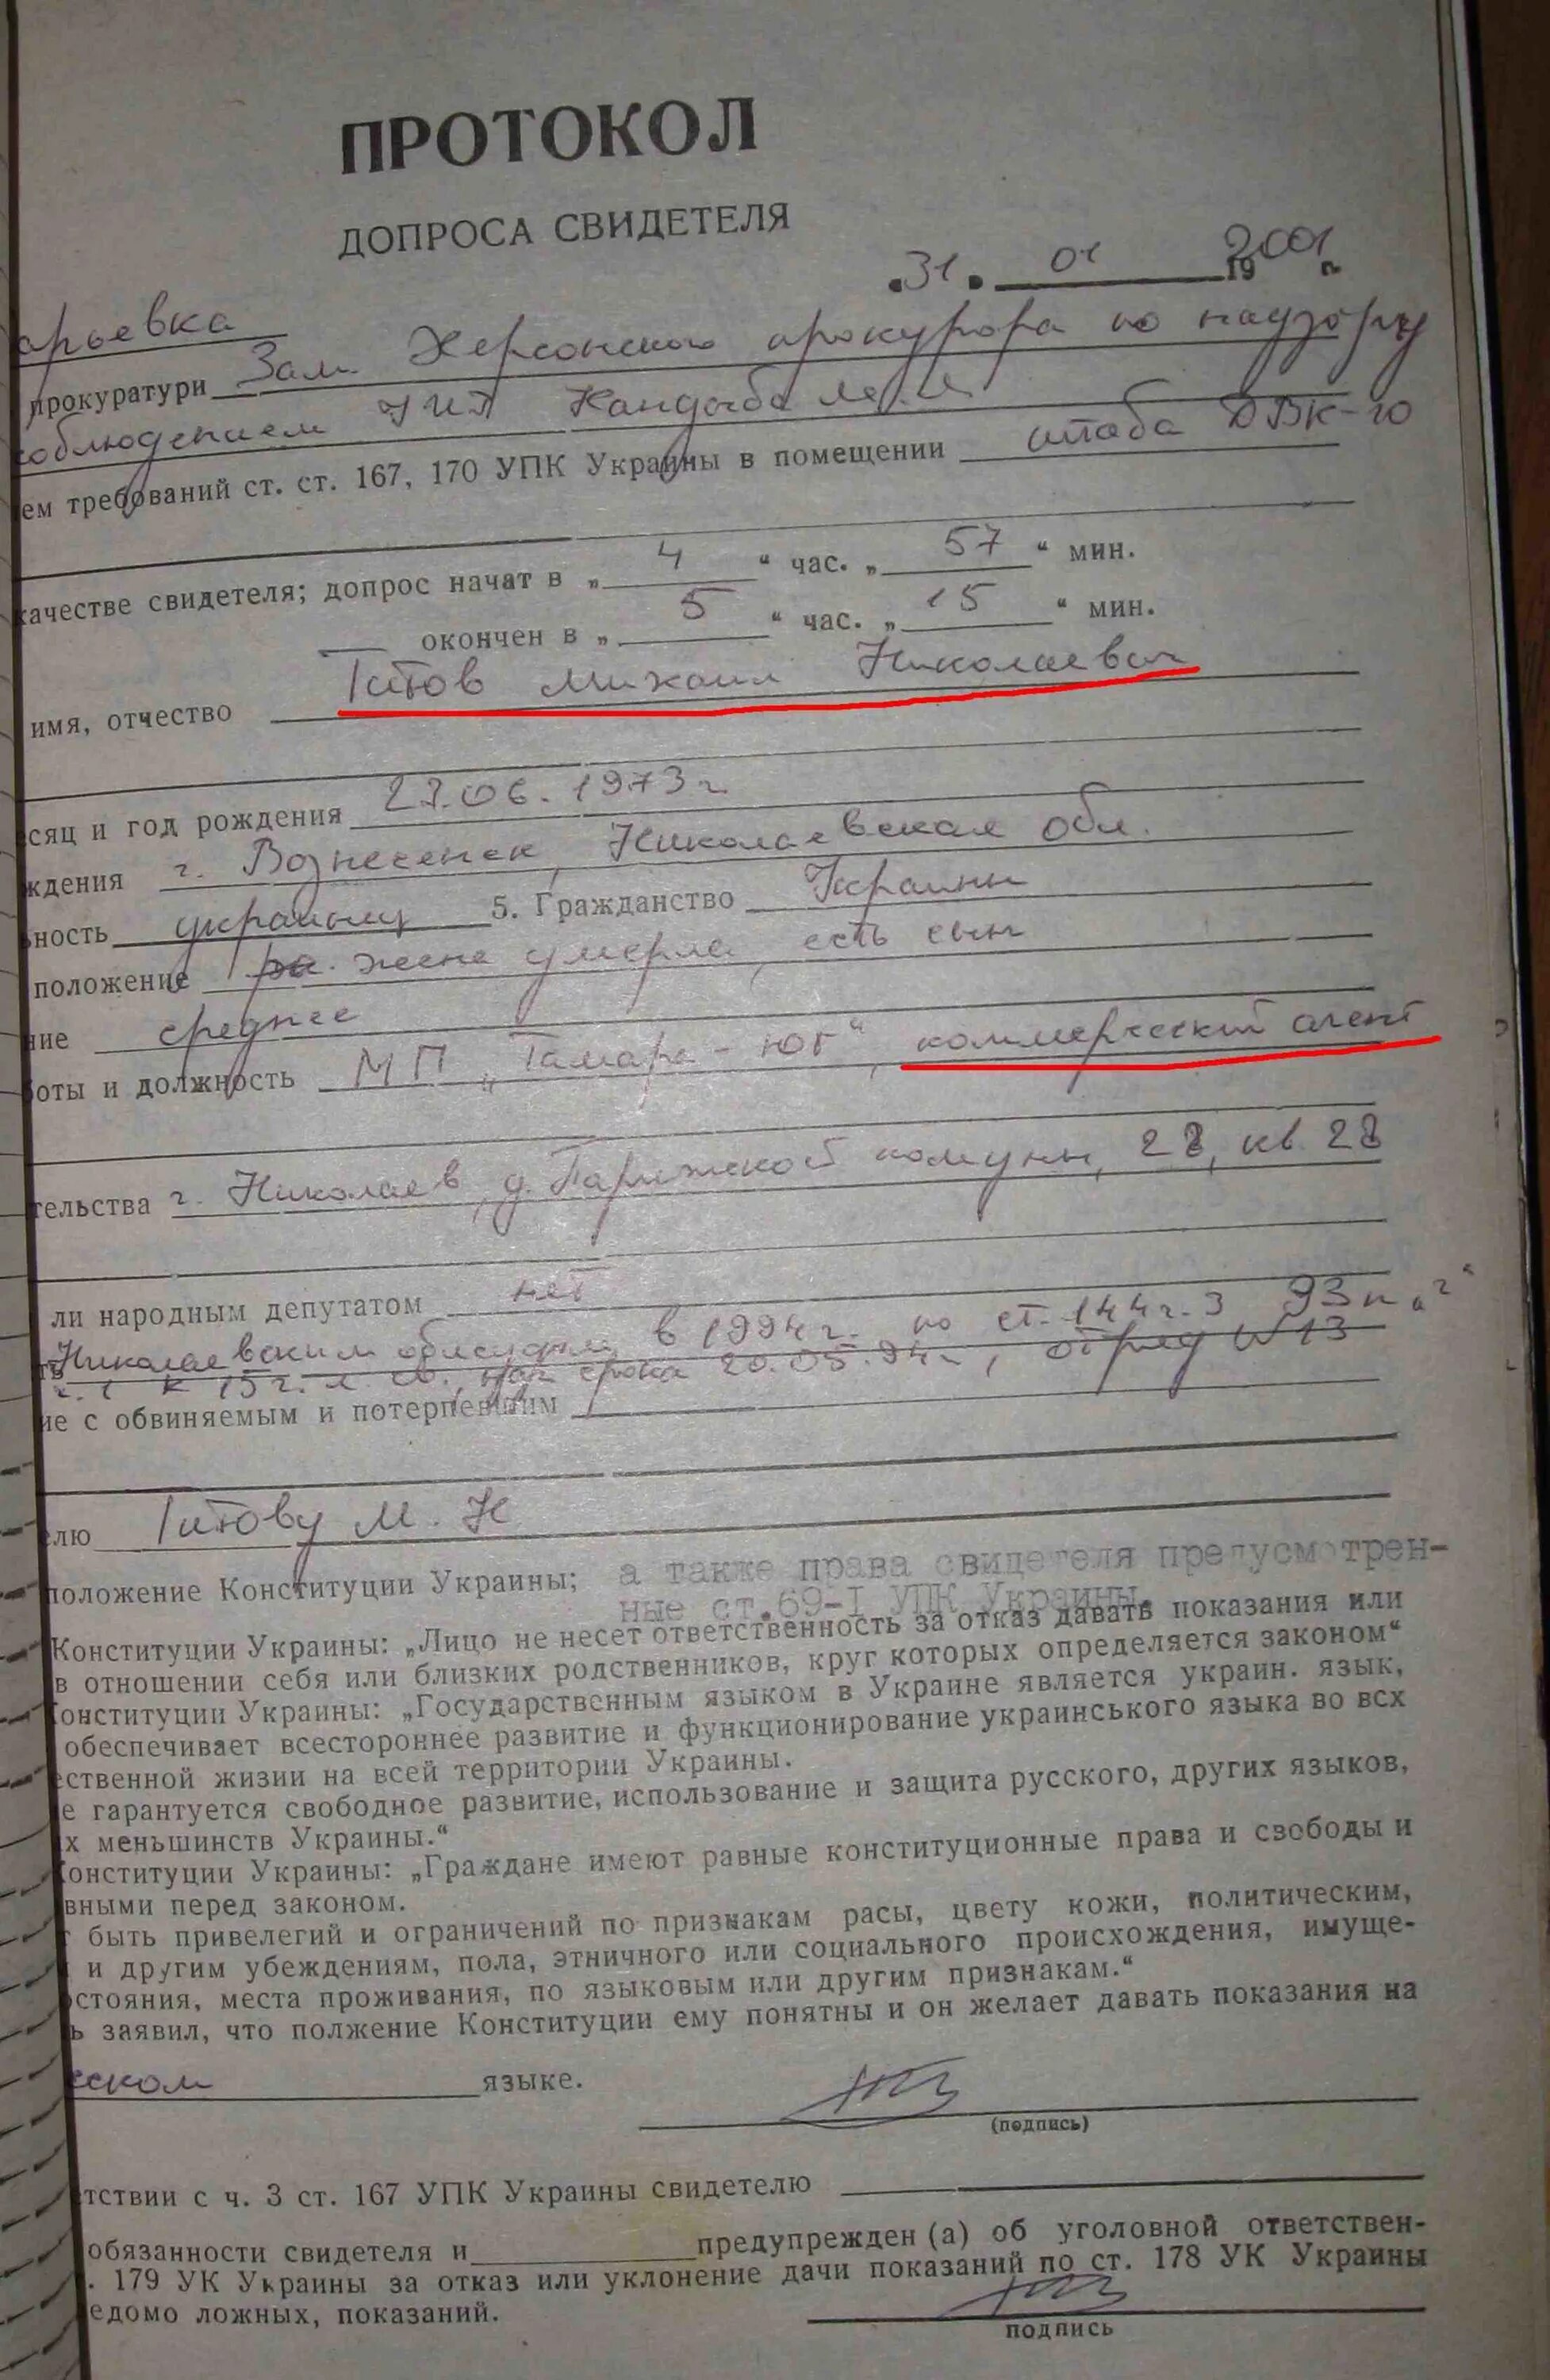 ПРОТОКОЛ
ДОПРОСА СВИДЕТЕЛЯ
"31" 01 19 2001 г.
арьевка
прокуратури Зам. Херсонского прокурора по надзору
соблюдением УИД Кандыба М.И.
ем требований ст. ст. 167, 170 УПК Украины в помещении штаба ДВК-10
качестве свидетеля; допрос начат в „ 4 “ час. „ 57 “ мин.
окончен в „ 5 “ час. „ 15 “ мин.
имя, отчество Титов Михаил Николаевич
сяц и год рождения 27.06.1973 г
ждения г. Вознесенск, Николаевская обл.
ность украинец 5. Гражданство Украины
положение жена умерла, есть сын
ние среднее
боты и должность МП „Тамара-ЮГ“, коммерческий агент
тельства г. Николаев, Парижской комуны, 28, кв. 28
ли народным депутатом нет
Николаевским облсудом в 1994 г. по ст. 144 ч. 3 93 п „г“
к 15 г. л. св. нач срока 20.05.94 г., отряд №13
ие с обвиняемым и потерпевшим
елю Титову М. Н
положение Конституции Украины; а также права свидетеля предусмотрен-
ные ст.69-I УПК Украины.
Конституции Украины: „Лицо не несет ответственность за отказ давать показания или
в отношении себя или близких родственников, круг которых определяется законом“
Конституции Украины: „Государственным языком в Украине является украин. язык,
обеспечивает всестороннее развитие и функционирование украинського языка во всх
ественной жизни на всей территории Украины.
е гарантуется свободное развитие, использование и защита русского, других языков,
х меньшинств Украины.“
Конституции Украины: „Граждане имеют равные конституционные права и свободы и
вными перед законом.
т быть привелегий и ограничений по признакам расы, цвету кожи, политическим,
и другим убеждениям, пола, этничного или социального происхождения, имуще-
стояния, места проживания, по языковым или другим признакам.“
ь заявил, что полжение Конституции ему понятны и он желает давать показания на
сском языке.
(подпись)
тствии с ч. 3 ст. 167 УПК Украины свидетелю
обязанности свидетеля и предупрежден (а) об уголовной ответствен-
. 179 УК Украины за отказ или уклонение дачи показаний по ст. 178 УК Украины
едомо ложных, показаний.
подпись